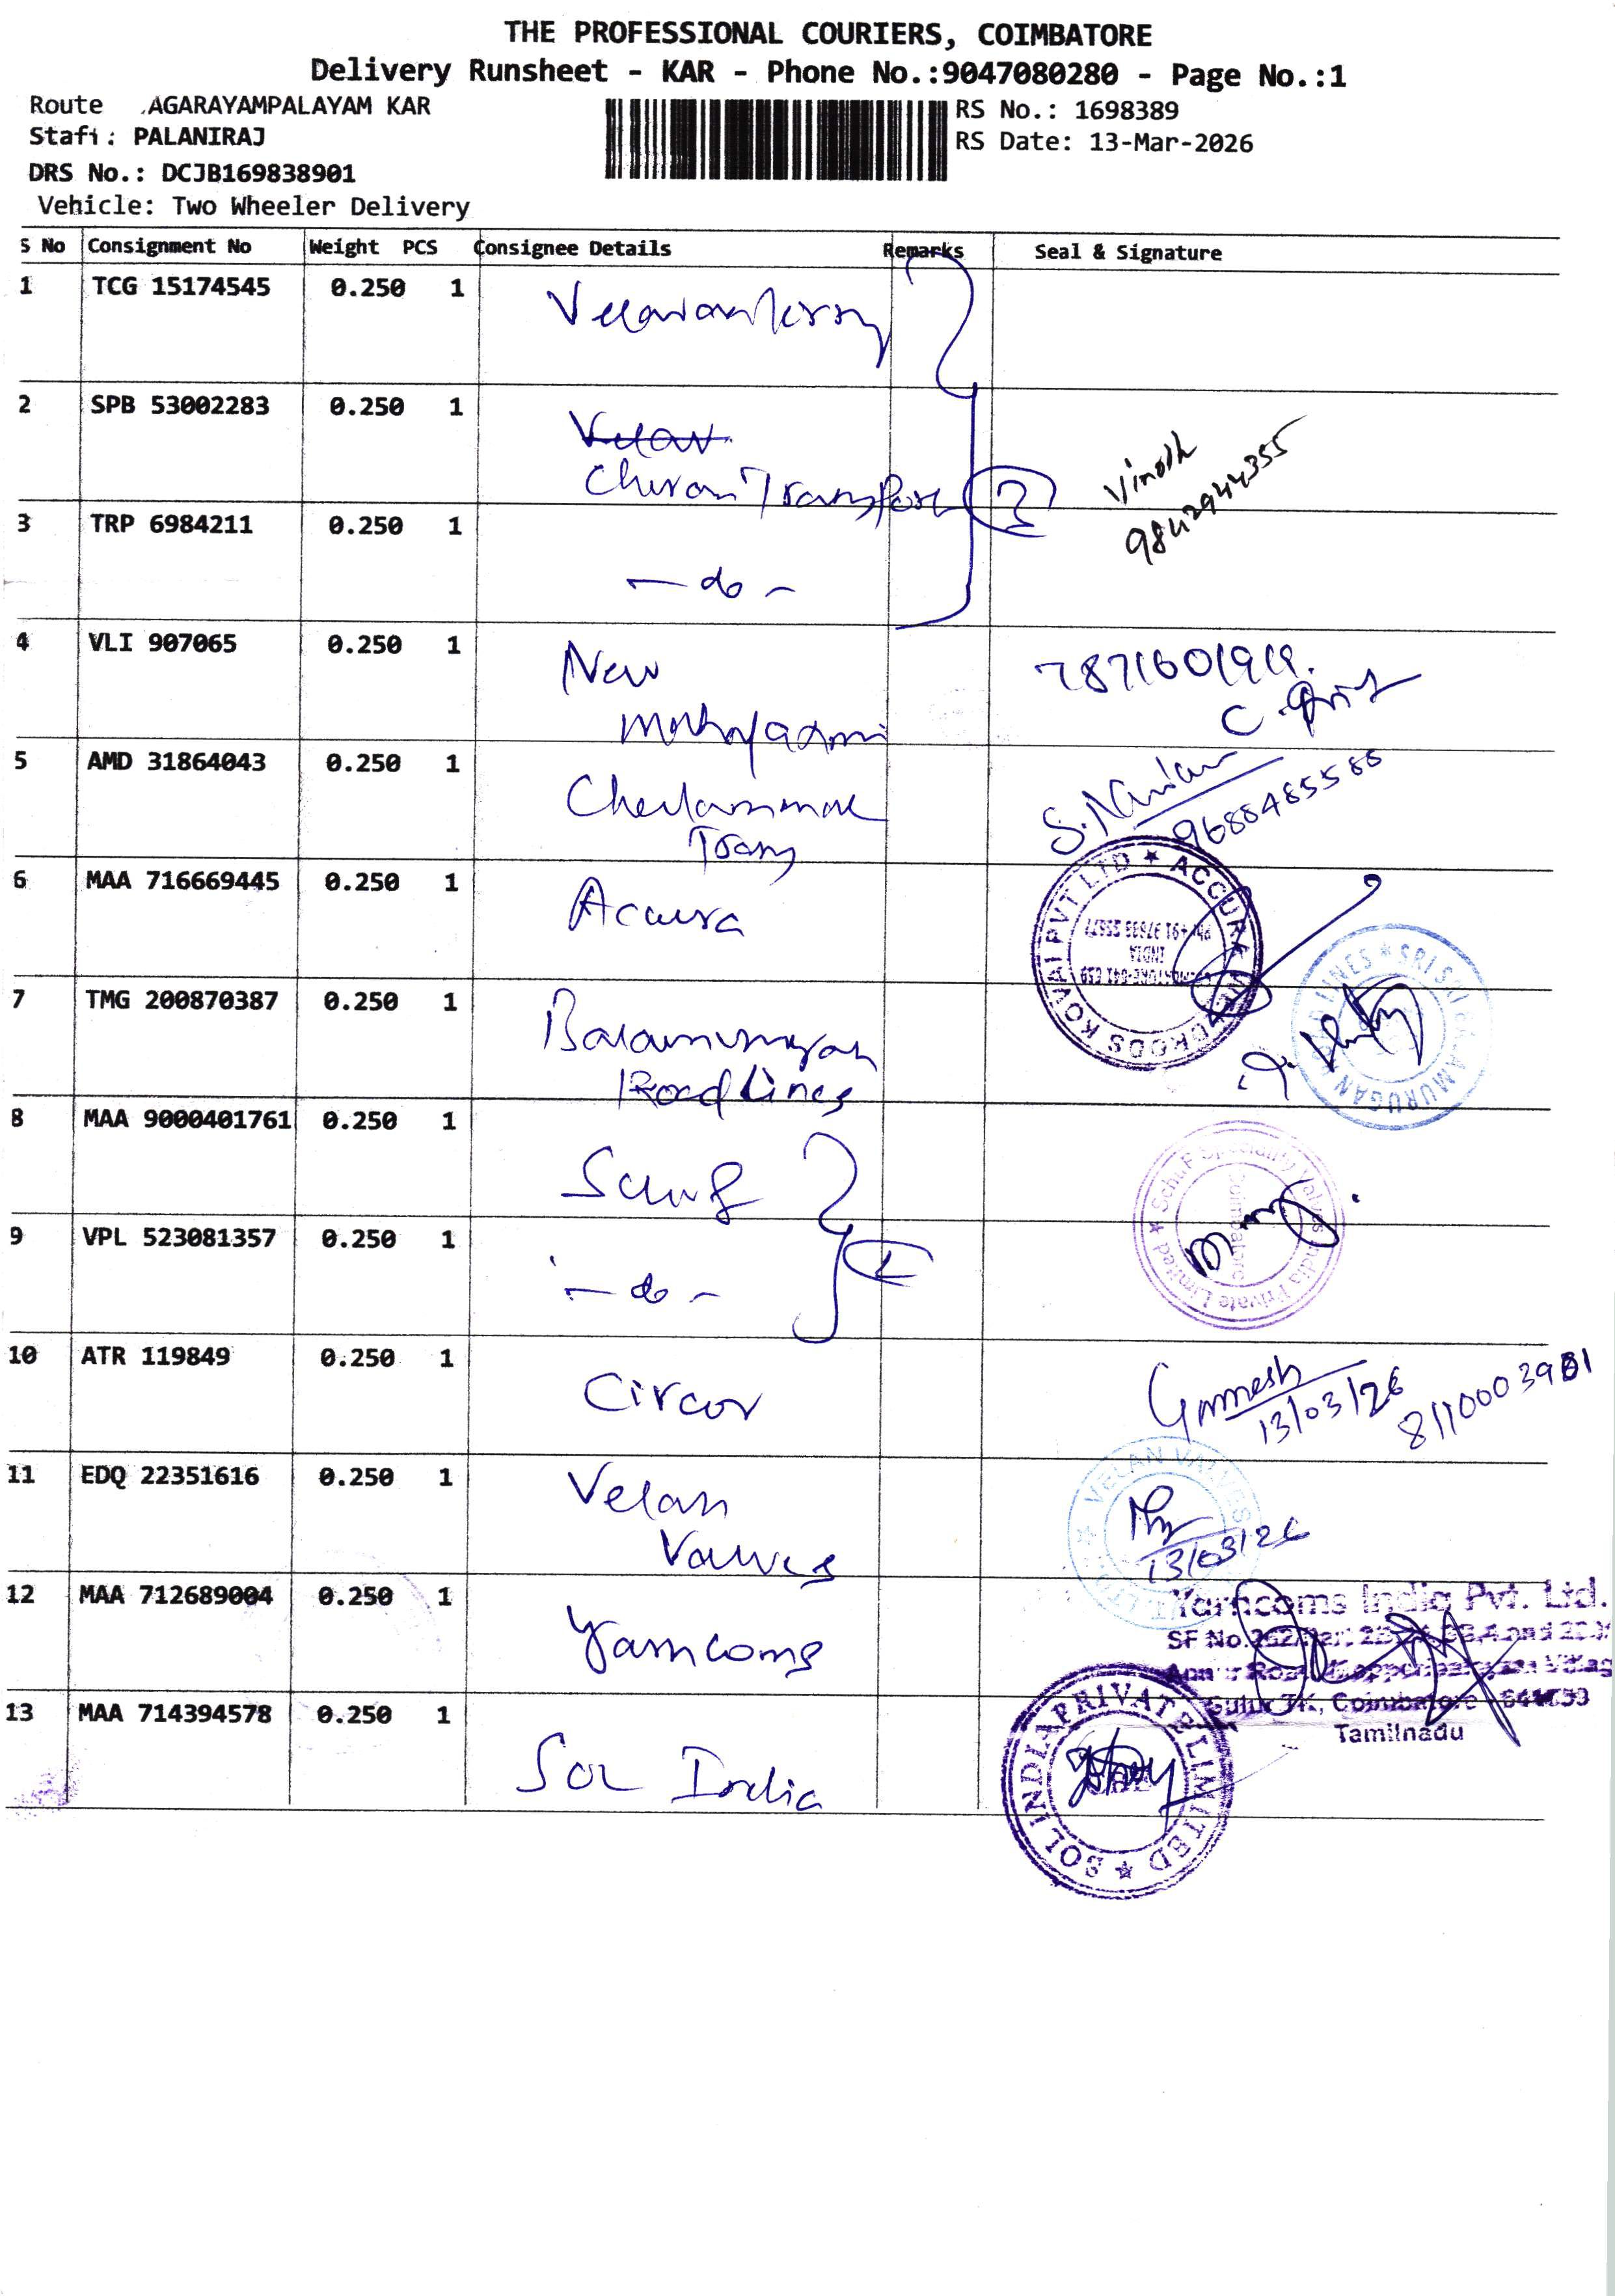 THE PROFESSIONAL COURIERS, COIMBATORE
Delivery Runsheet - KAR - Phone No.:9047080280 - Page No.:1
Route .AGARAYAMPALAYAM KAR
RS No.: 1698389
Staff: PALANIRAJ
RS Date: 13-Mar-2026
DRS No.: DCJB169838901
Vehicle: Two Wheeler Delivery
S No Consignment No Weight PCS Consignee Details Remarks Seal & Signature
1 TCG 15174545 0.250 1
2 SPB 53002283 0.250 1
Velan
Chiran Transport
Vinoth
9842944355
3 TRP 6984211 0.250 1
- do -
4 VLI 907065 0.250 1
New
5 AMD 31864043 0.250 1
Trans
9688485588
6 MAA 716669445 0.250 1
Accura
7 TMG 200870387 0.250 1
Balamurugan
Road Lines
8 MAA 9000401761 0.250 1
Schuf
Schuf Speciality Valves India Private Limited
Coimbatore
9 VPL 523081357 0.250 1
- do -
10 ATR 119849 0.250 1
Circor
Gamesh
13/03/26
11 EDQ 22351616 0.250 1
Velan
Valves
VELAN VALVES
13/03/26
12 MAA 712689004 0.250 1
Yamcoms
Yamcoms India Pvt. Ltd.
SF No.
Sulur TK, Coimbatore - 641659
Tamilnadu
13 MAA 714394578 0.250 1
Sol India
SOL INDIA PRIVATE LIMITED